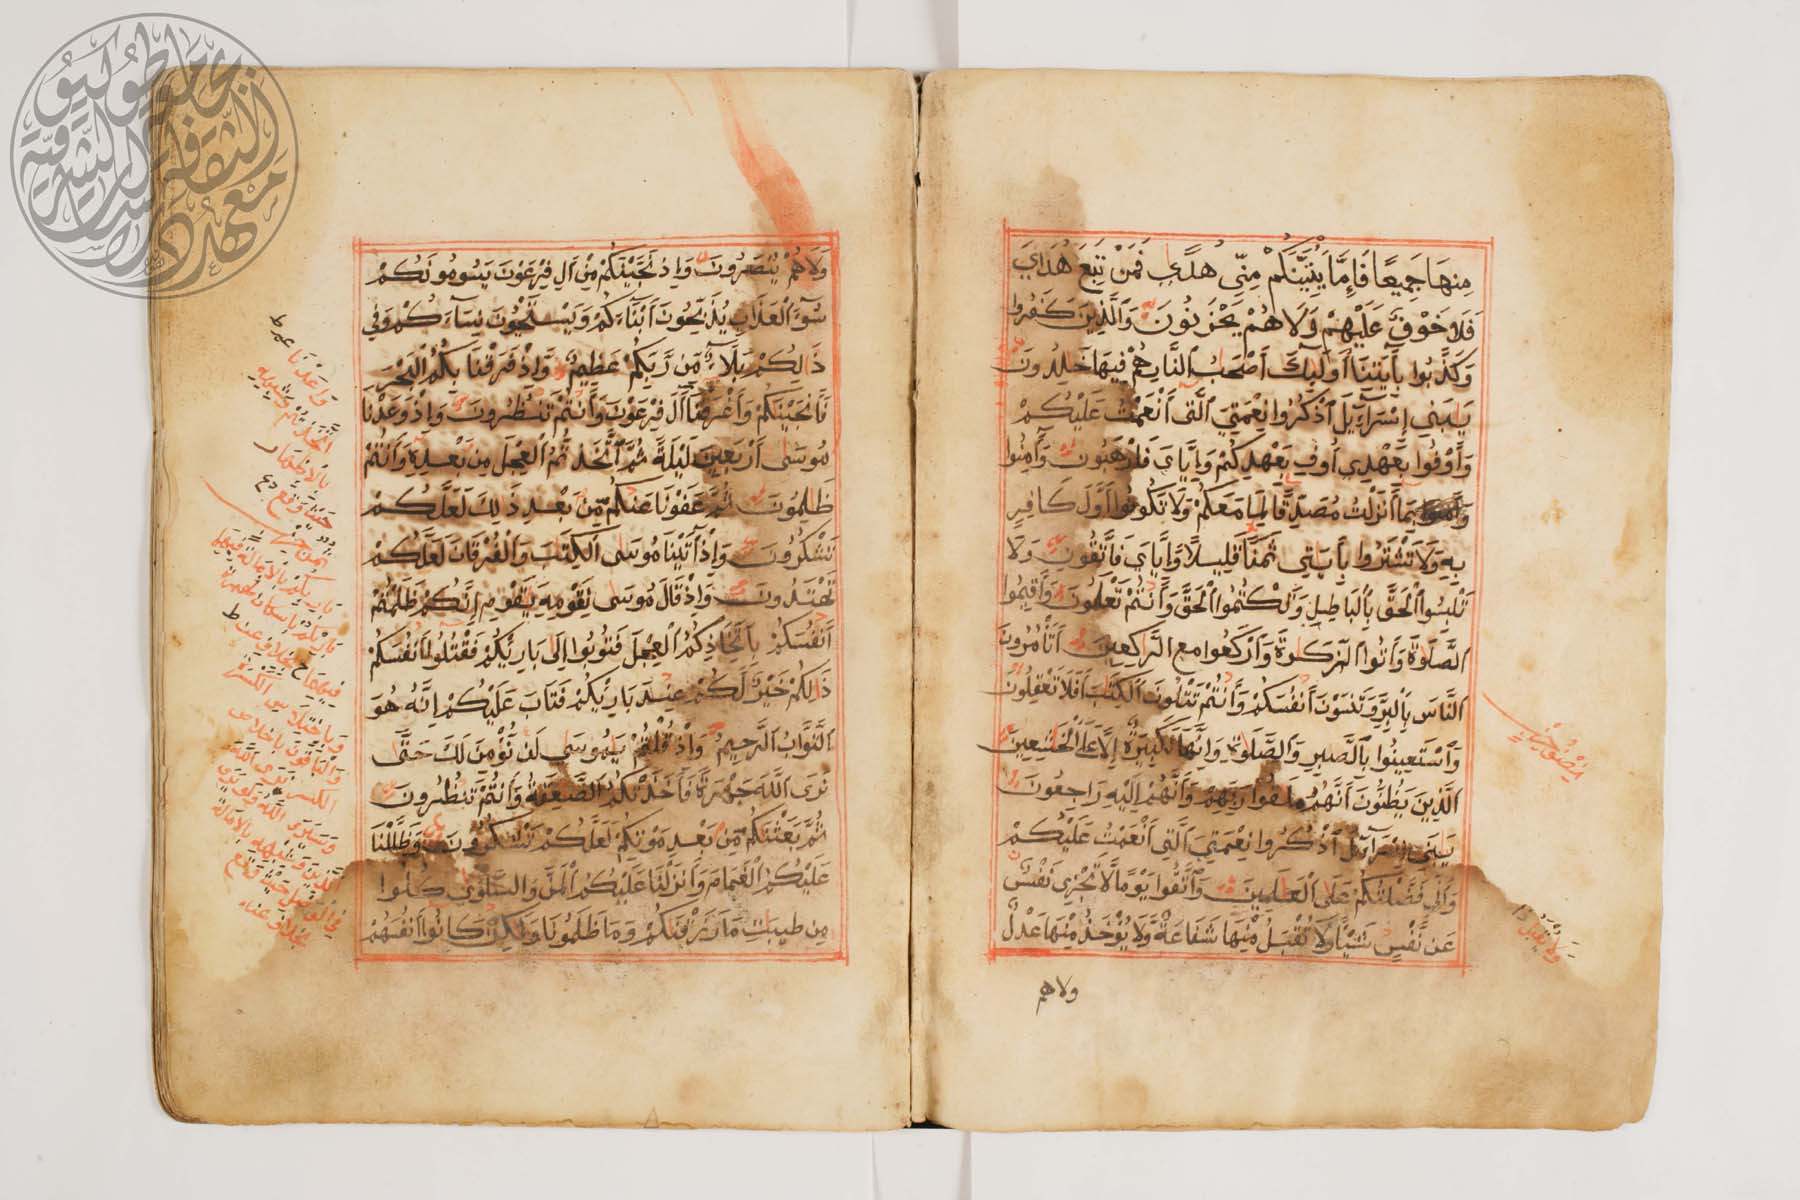 مِنْهَا جَمِيعًا فَإِمَّا يَأْتِيَنَّكُمْ مِنِّي هُدًى فَمَنْ تَبِعَ هُدَايَ
فَلَا خَوْفٌ عَلَيْهِمْ وَلَا هُمْ يَحْزَنُونَ وَالَّذِينَ كَفَرُوا
وَكَذَّبُوا بِآيَتِنَا أُولَئِكَ أَصْحَبُ النَّارِ هُمْ فِيهَا خَلِدُونَ
يَبَنِي إِسْرَآءِيلَ اذْكُرُوا نِعْمَتِيَ الَّتِي أَنْعَمْتُ عَلَيْكُمْ
وَأَوْفُوا بِعَهْدِي أُوفِ بِعَهْدِكُمْ وَإِيَّايَ فَارْهَبُونِ وَآمِنُوا
بِمَا أَنْزَلْتُ مُصَدِّقًا لِمَا مَعَكُمْ وَلَا تَكُونُوا أَوَّلَ كَافِرٍ
بِهِ وَلَا تَشْتَرُوا بِآيَاتِي ثَمَنًا قَلِيلًا وَإِيَّايَ فَاتَّقُونِ وَلَا
تَلْبِسُوا الْحَقَّ بِالْبَاطِلِ وَتَكْتُمُوا الْحَقَّ وَأَنْتُمْ تَعْلَمُونَ وَأَقِيمُوا
الصَّلَوةَ وَآتُوا الزَّكَوةَ وَارْكَعُوا مَعَ الرَّاكِعِينَ أَتَأْمُرُونَ
النَّاسَ بِالْبِرِّ وَتَنْسَوْنَ أَنْفُسَكُمْ وَأَنْتُمْ تَتْلُونَ الْكِتَبَ أَفَلَا تَعْقِلُونَ
وَاسْتَعِينُوا بِالصَّبْرِ وَالصَّلَوةِ وَإِنَّهَا لَكَبِيرَةٌ إِلَّا عَلَى الْخَشِعِينَ
الَّذِينَ يَظُنُّونَ أَنَّهُمْ مُلَقُوا رَبِّهِمْ وَأَنَّهُمْ إِلَيْهِ رَاجِعُونَ
يَبَنِي إِسْرَآءِيلَ اذْكُرُوا نِعْمَتِيَ الَّتِي أَنْعَمْتُ عَلَيْكُمْ
وَأَنِّي فَضَّلْتُكُمْ عَلَى الْعَلَمِينَ وَاتَّقُوا يَوْمًا لَا تَجْزِي نَفْسٌ
عَنْ نَفْسٍ شَيْئًا وَلَا تُقْبَلُ مِنْهَا شَفَاعَةٌ وَلَا يُؤْخَذُ مِنْهَا عَدْلٌ
ولا هم
وَلَا هُمْ يُنْصَرُونَ وَإِذْ نَجَّيْنَكُمْ مِنْ آلِ فِرْعَوْنَ يَسُومُونَكُمْ
سُوءَ الْعَذَابِ يُذَبِّحُونَ أَبْنَآءَكُمْ وَيَسْتَحْيُونَ نِسَآءَكُمْ وَفِي
ذَالِكُمْ بَلَآءٌ مِنْ رَبِّكُمْ عَظِيمٌ وَإِذْ فَرَقْنَا بِكُمُ الْبَحْرَ
فَأَنْجَيْنَكُمْ وَأَغْرَقْنَا آلَ فِرْعَوْنَ وَأَنْتُمْ تَنْظُرُونَ وَإِذْ وَعَدْنَا
مُوسَى أَرْبَعِينَ لَيْلَةً ثُمَّ اتَّخَذْتُمُ الْعِجْلَ مِنْ بَعْدِهِ وَأَنْتُمْ
ظَلِمُونَ ثُمَّ عَفَوْنَا عَنْكُمْ مِنْ بَعْدِ ذَلِكَ لَعَلَّكُمْ
تَشْكُرُونَ وَإِذْ آتَيْنَا مُوسَى الْكِتَبَ وَالْفُرْقَانَ لَعَلَّكُمْ
تَهْتَدُونَ وَإِذْ قَالَ مُوسَى لِقَوْمِهِ يَقَوْمِ إِنَّكُمْ ظَلَمْتُمْ
أَنْفُسَكُمْ بِاتِّخَاذِكُمُ الْعِجْلَ فَتُوبُوا إِلَى بَارِئِكُمْ فَاقْتُلُوا أَنْفُسَكُمْ
ذَالِكُمْ خَيْرٌ لَكُمْ عِنْدَ بَارِئِكُمْ فَتَابَ عَلَيْكُمْ إِنَّهُ هُوَ
التَّوَّابُ الرَّحِيمُ وَإِذْ قُلْتُمْ يَمُوسَى لَنْ نُؤْمِنَ لَكَ حَتَّى
نَرَى اللَّهَ جَهْرَةً فَأَخَذَتْكُمُ الصَّعِقَةُ وَأَنْتُمْ تَنْظُرُونَ
ثُمَّ بَعَثْنَكُمْ مِنْ بَعْدِ مَوْتِكُمْ لَعَلَّكُمْ تَشْكُرُونَ وَظَلَّلْنَا
عَلَيْكُمُ الْغَمَامَ وَأَنْزَلْنَا عَلَيْكُمُ الْمَنَّ وَالسَّلْوَى كُلُوا
مِنْ طَيِّبَاتِ مَا رَزَقْنَكُمْ وَمَا ظَلَمُونَا وَلَكِنْ كَانُوا أَنْفُسَهُمْ
وَلَا تُقْبَلُ
وَعَدْنَا
اتَّخَذْتُمْ وَشِبْهِهِ
بِالْإِظْهَارِ
حَيْثُ وَقَعَ
بَارِئِكُمْ بِالْإِمَالَةِ فِيهِمَا
بَارِئْكُمْ بِإِسْكَانِ الْهَمْزَةِ
فِيهِمَا
وَبِاخْتِلَاسِ الْكَسْرِ
وَالْبَاقُونَ بِإِخْلَاصِ
الْكَسْرِ نَرَى اللَّهَ
وَسَيَرَى اللَّهُ وَلَوْ يَرَى
الَّذِينَ وَشِبْهِهِ بِالْإِمَالَةِ
فِي الْوَصْلِ حَيْثُ وَقَعَ
بِخِلَافٍ عَنْهُ
معهد الثقافة والدراسات الشرقية
جامعة طوكيو